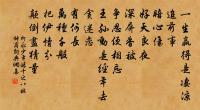 一生贏得是淒涼
追前事
暗心傷
好天良夜
深屏香被
爭忍便相忘
王孫動是經年去
貪迷戀
有何長
萬種千般
把伊情分
顛倒盡猜量
柳永少年遊十之八林